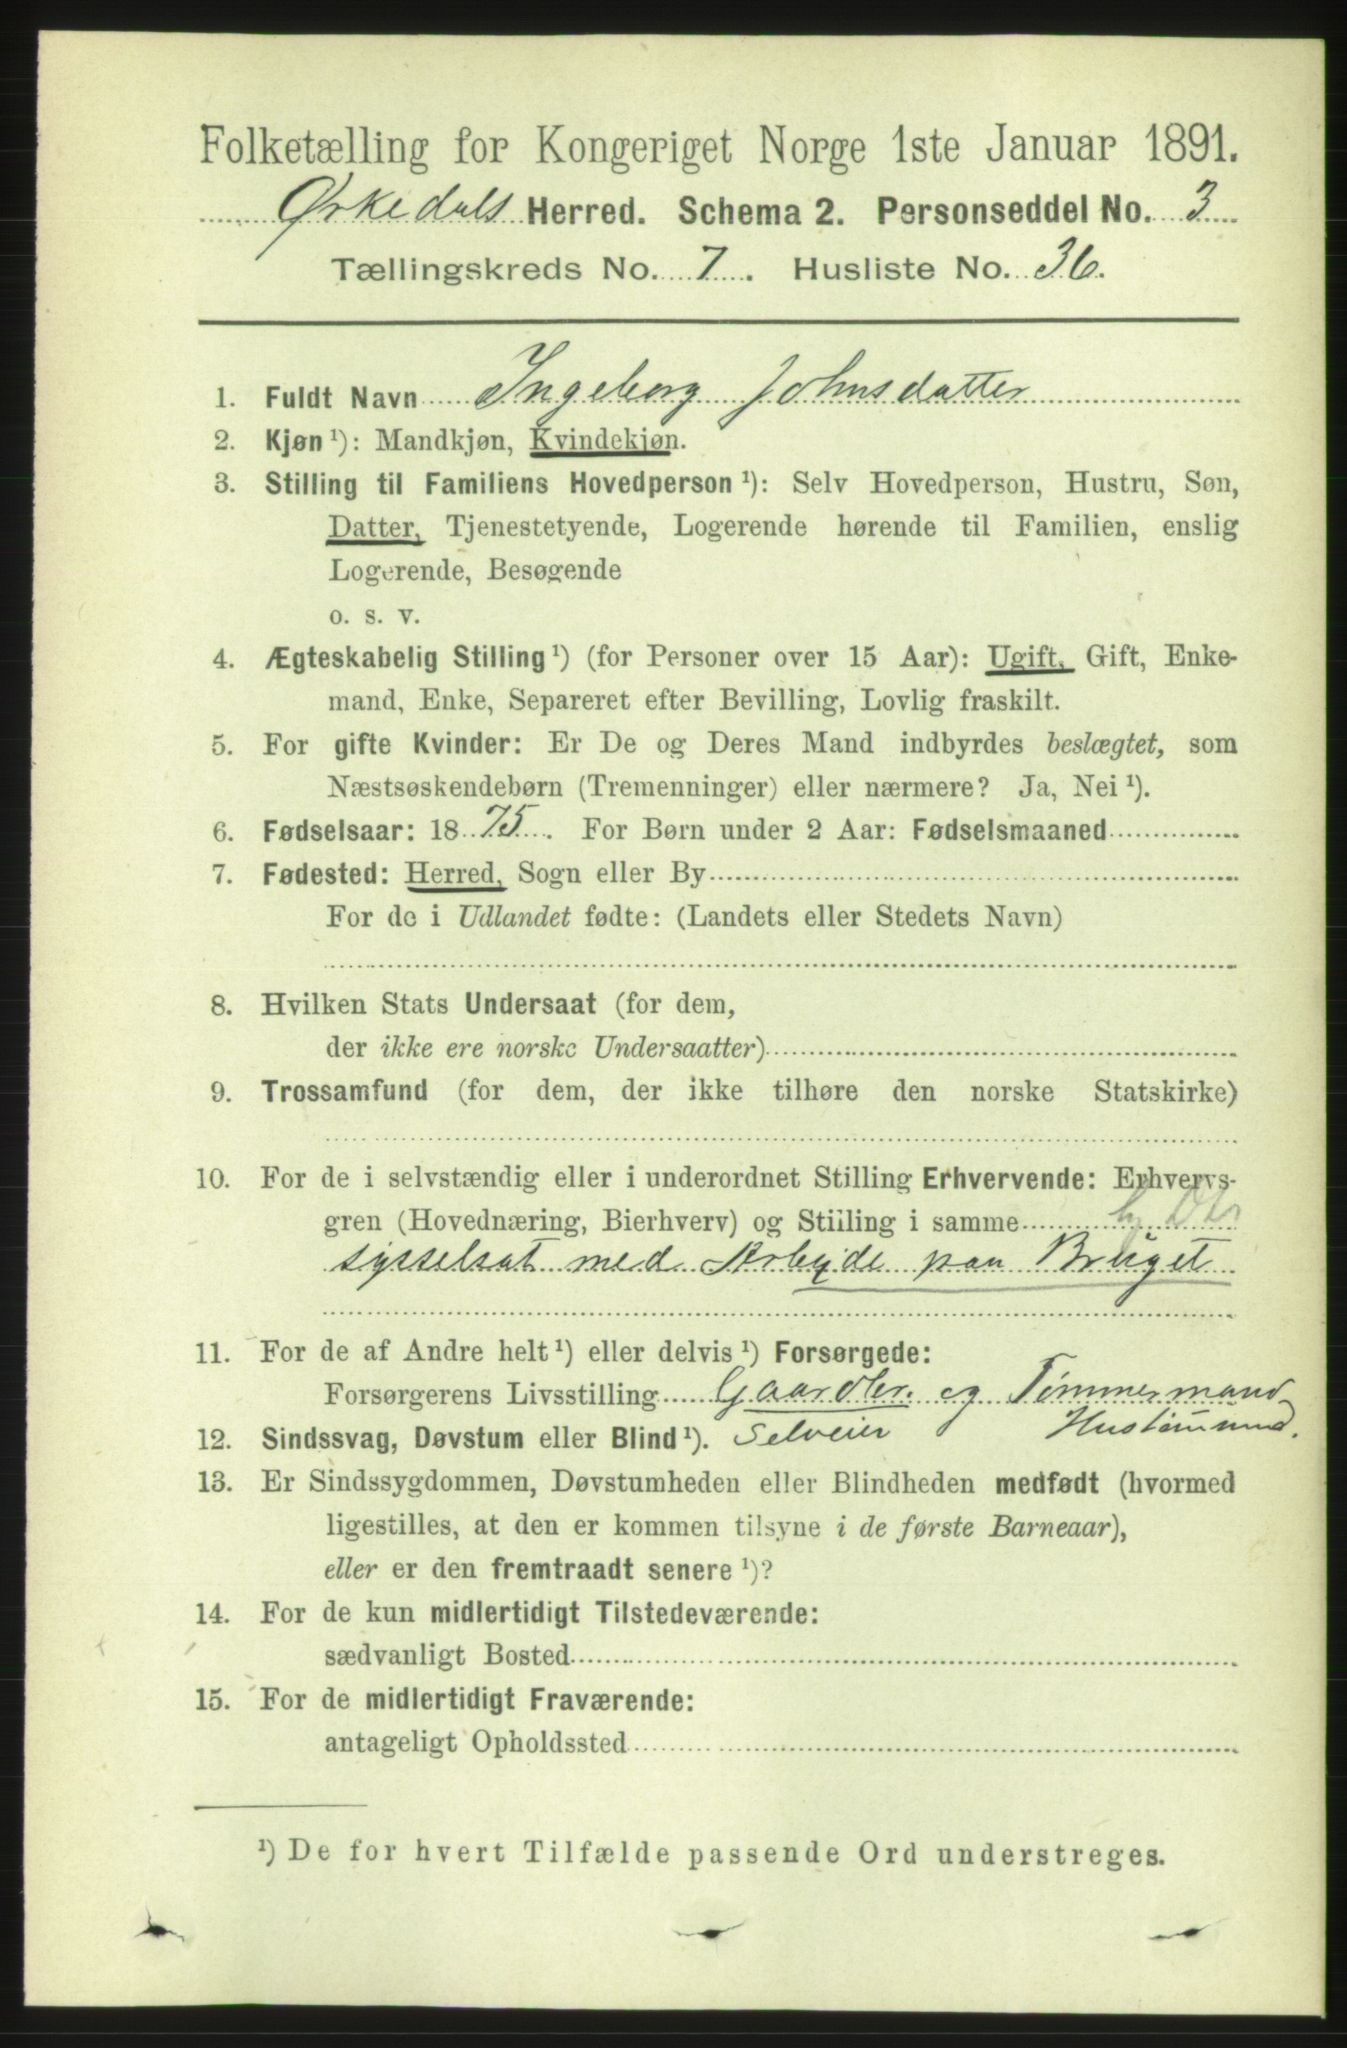 Folketælling for Kongeriget Norge 1ste Januar 1891.
Ørkedals Herred. Schema 2. Personseddel No. 3
Tællingskreds No. 7. Husliste No. 36.
1. Fuldt Navn Ingeborg Johnsdatter
2. Kjøn ¹): Mandkjøn, Kvindekjøn.
3. Stilling til Familiens Hovedperson ¹): Selv Hovedperson, Hustru, Søn,
Datter, Tjenestetyende, Logerende hørende til Familien, enslig
Logerende, Besøgende
o. s. v.
4. Ægteskabelig Stilling ¹) (for Personer over 15 Aar): Ugift, Gift, Enke-
mand, Enke, Separeret efter Bevilling, Lovlig fraskilt.
5. For gifte Kvinder: Er De og Deres Mand indbyrdes beslægtet, som
Næstsøskendebørn (Tremenninger) eller nærmere? Ja, Nei ¹).
6. Fødselsaar: 1875. For Børn under 2 Aar: Fødselsmaaned
7. Fødested: Herred, Sogn eller By
For de i Udlandet fødte: (Landets eller Stedets Navn)
8. Hvilken Stats Undersaat (for dem,
der ikke ere norske Undersaatter)
9. Trossamfund (for dem, der ikke tilhøre den norske Statskirke)
10. For de i selvstændig eller i underordnet Stilling Erhvervende: Erhvervs-
gren (Hovednæring, Bierhverv) og Stilling i samme
sysselsat med Arbeide paa Bruget
11. For de af Andre helt ¹) eller delvis ¹) Forsørgede:
Forsørgerens Livsstilling Gaardbr. og Tømmermand
12. Sindssvag, Døvstum eller Blind ¹). Selveier Hustømmend.
13. Er Sindssygdommen, Døvstumheden eller Blindheden medfødt (hvormed
ligestilles, at den er kommen tilsyne i de første Barneaar),
eller er den fremtraadt senere ¹)?
14. For de kun midlertidigt Tilstedeværende:
sædvanligt Bosted
15. For de midlertidigt Fraværende:
antageligt Opholdssted
¹) De for hvert Tilfælde passende Ord understreges.